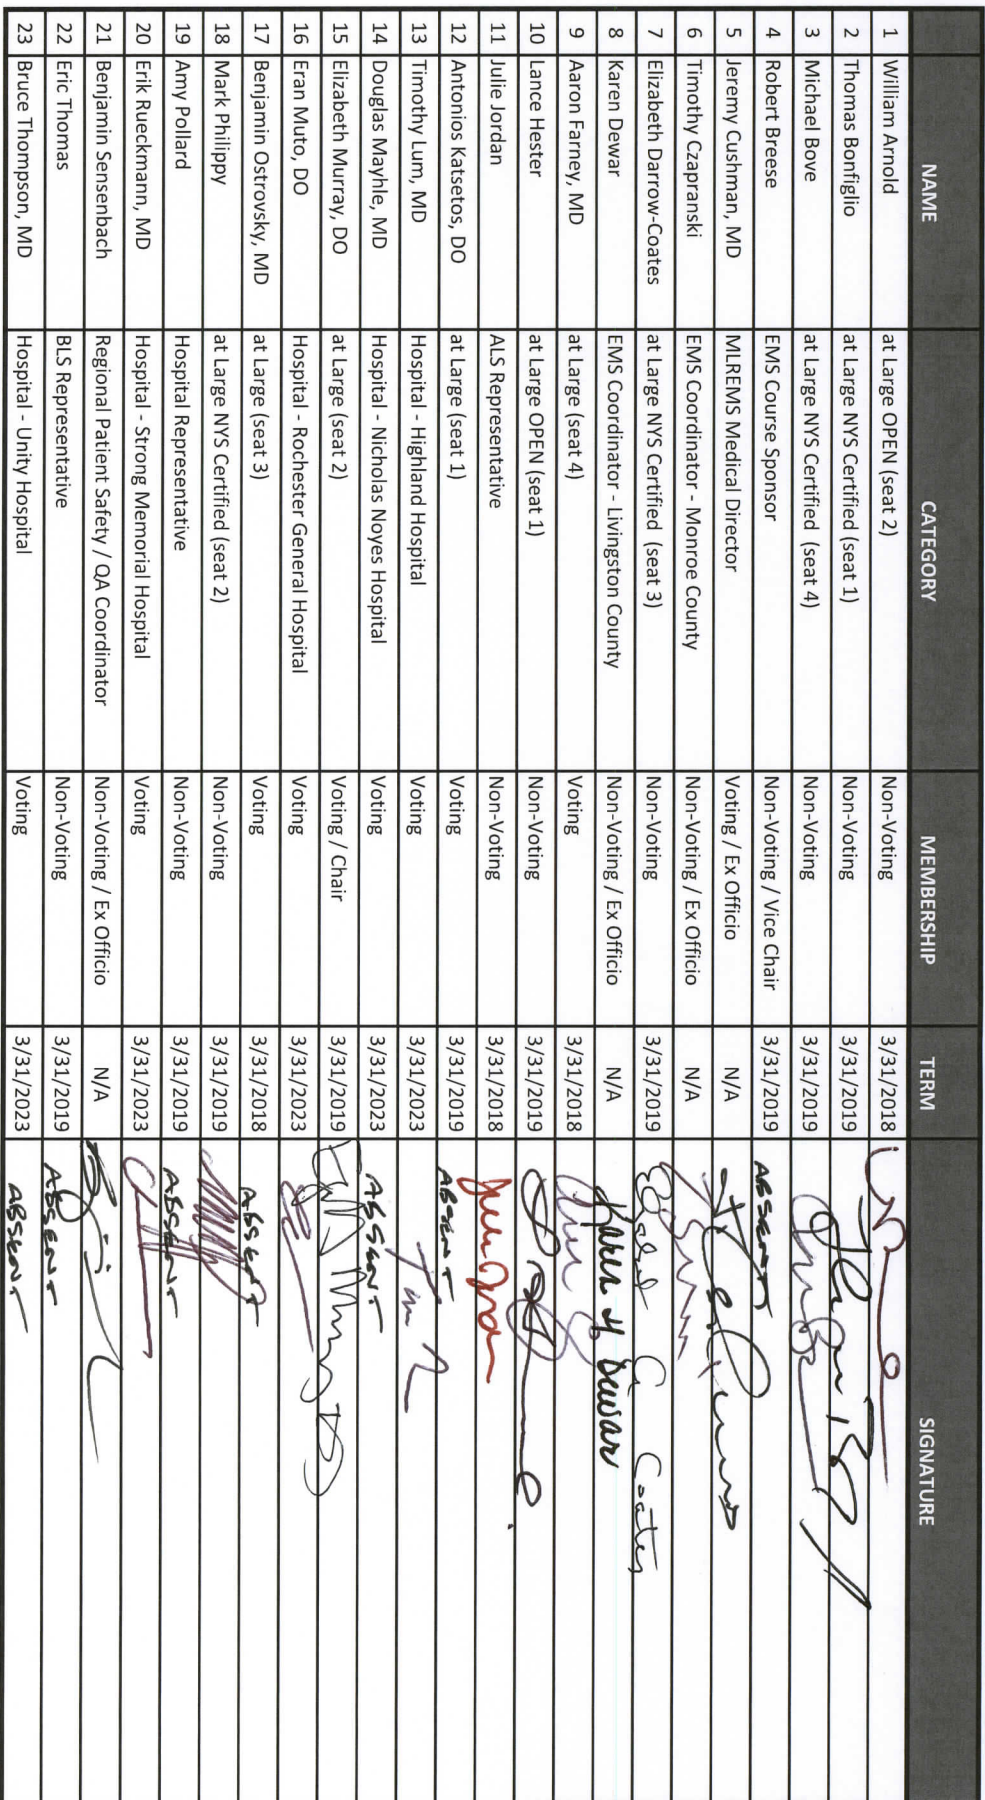 NAME CATEGORY MEMBERSHIP TERM SIGNATURE
1 William Arnold at Large OPEN (seat 2) Non-Voting 3/31/2018
2 Thomas Bonfiglio at Large NYS Certified (seat 1) Non-Voting 3/31/2019
3 Michael Bove at Large NYS Certified (seat 4) Non-Voting 3/31/2019
4 Robert Breese EMS Course Sponsor Non-Voting / Vice Chair 3/31/2019 ABSENT
5 Jeremy Cushman, MD MLREMS Medical Director Voting / Ex Officio N/A
6 Timothy Czapranski EMS Coordinator - Monroe County Non-Voting / Ex Officio N/A
7 Elizabeth Darrow-Coates at Large NYS Certified (seat 3) Non-Voting 3/31/2019 Coates
8 Karen Dewar EMS Coordinator - Livingston County Non-Voting / Ex Officio N/A Karen H Dewar
9 Aaron Farney, MD at Large (seat 4) Voting 3/31/2018
10 Lance Hester at Large OPEN (seat 1) Non-Voting 3/31/2019
11 Julie Jordan ALS Representative Non-Voting 3/31/2018
12 Antonios Katsetos, DO at Large (seat 1) Voting 3/31/2019 ABSENT
13 Timothy Lum, MD Hospital - Highland Hospital Voting 3/31/2023
14 Douglas Mayhle, MD Hospital - Nicholas Noyes Hospital Voting 3/31/2023 ABSENT
15 Elizabeth Murray, DO at Large (seat 2) Voting / Chair 3/31/2019
16 Eran Muto, DO Hospital - Rochester General Hospital Voting 3/31/2023
17 Benjamin Ostrovsky, MD at Large (seat 3) Voting 3/31/2018 ABSENT
18 Mark Philippy at Large NYS Certified (seat 2) Non-Voting 3/31/2019
19 Amy Pollard Hospital Representative Non-Voting 3/31/2019 ABSENT
20 Erik Rueckmann, MD Hospital - Strong Memorial Hospital Voting 3/31/2023
21 Benjamin Sensenbach Regional Patient Safety / QA Coordinator Non-Voting / Ex Officio N/A
22 Eric Thomas BLS Representative Non-Voting 3/31/2019 ABSENT
23 Bruce Thompson, MD Hospital - Unity Hospital Voting 3/31/2023 ABSENT